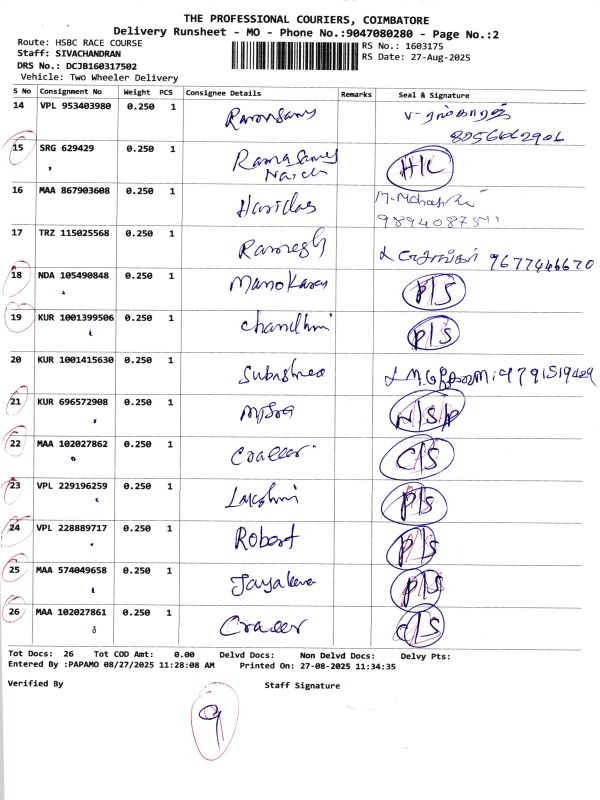 THE PROFESSIONAL COURIERS, COIMBATORE
Delivery Runsheet - MO - Phone No.:9047080280 - Page No.:2
Route: HSBC RACE COURSE
Staff: SIVACHANDRAN
RS No.: 1603175
DRS No.: DCJB160317502
RS Date: 27-Aug-2025
Vehicle: Two Wheeler Delivery
S No Consignment No Weight PCS Consignee Details Remarks Seal & Signature
14 VPL 953403980 0.250 1
8056662906
15 SRG 629429 0.250 1 Ramasamy H/L
16 MAA 867903608 0.250 1 Haridas
17 TRZ 115025568 0.250 1 Ramesh 9677446670
18 NDA 105490848 0.250 1 Manokaran P/S
19 KUR 1001399506 0.250 1 Chandhini P/S
20 KUR 1001415630 0.250 1 9791519429
21 KUR 696572908 0.250 1 N/S/P
22 MAA 102027862 0.250 1 C/S
23 VPL 229196259 0.250 1 Lakshmi P/S
24 VPL 228889717 0.250 1 Robert P/S
25 MAA 574049658 0.250 1 P/S
26 MAA 102027861 0.250 1 C/S
Tot Docs: 26 Tot COD Amt: 0.00 Delvd Docs: Non Delvd Docs: Delvy Pts:
Entered By :PAPAMO 08/27/2025 11:28:08 AM Printed On: 27-08-2025 11:34:35
Verified By Staff Signature
9